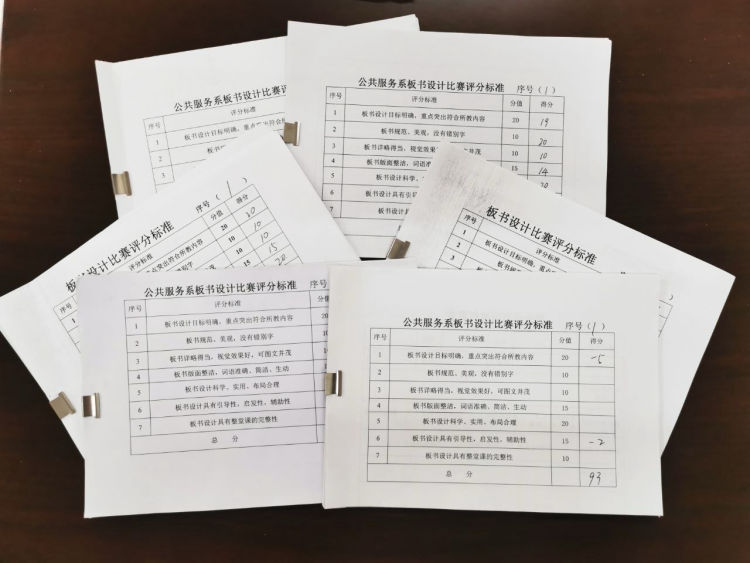 公共服务系板书设计比赛评分标准
序号 评分标准
1 板书设计目标明确，重点突出符合
2 板书规
3
公共服务系板书设计比赛评分标准 序号（1）
序号 评分标准 分值 得分
1 板书设计目标明确，重点突出符合所教内容 20 19
2 板书规范、美观，没有错别字 10
3 板书详略得当，视觉效果 文并茂 10 10
4 板书版面整洁，词语准 15 14
5 板书设计科学、
6 板书设计具有引导
7 板书设计具
板书设计比赛评分标准 序号（1）
序号 评分标准 分值 得分
1 板书设计目标明确，重点突出符合所教内容 20 20
10 10
10 10
15 15
20
板书设计比赛评分标准
序号 评分标准
1 板书设计目标明确，重
2 板书规
3
公共服务系板书设计比赛评分标准 序号
序号 评分标准 分值
1 板书设计目标明确，重点突出符合所教内容 20
2 板书规范、美观，没有错别字 10
3 板书详略得当，视觉效果好，可图文并茂
4 板书版面整洁，词语准确、简洁、生动
5 板书设计科学、实用、布局合理
6 板书设计具有引导性，启发性，辅助性
7 板书设计具有整堂课的完整性
总 分
公共服务系板书设计比赛评分标准 序号（1）
序号 评分标准 分值 得分
1 板书设计目标明确，重点突出符合所教内容 20 -5
2 板书规范、美观，没有错别字 10
3 板书详略得当，视觉效果好，可图文并茂 10
4 板书版面整洁，词语准确、简洁、生动 15
5 板书设计科学、实用、布局合理 20
6 板书设计具有引导性，启发性，辅助性 15 -2
7 板书设计具有整堂课的完整性 10
总 分 93